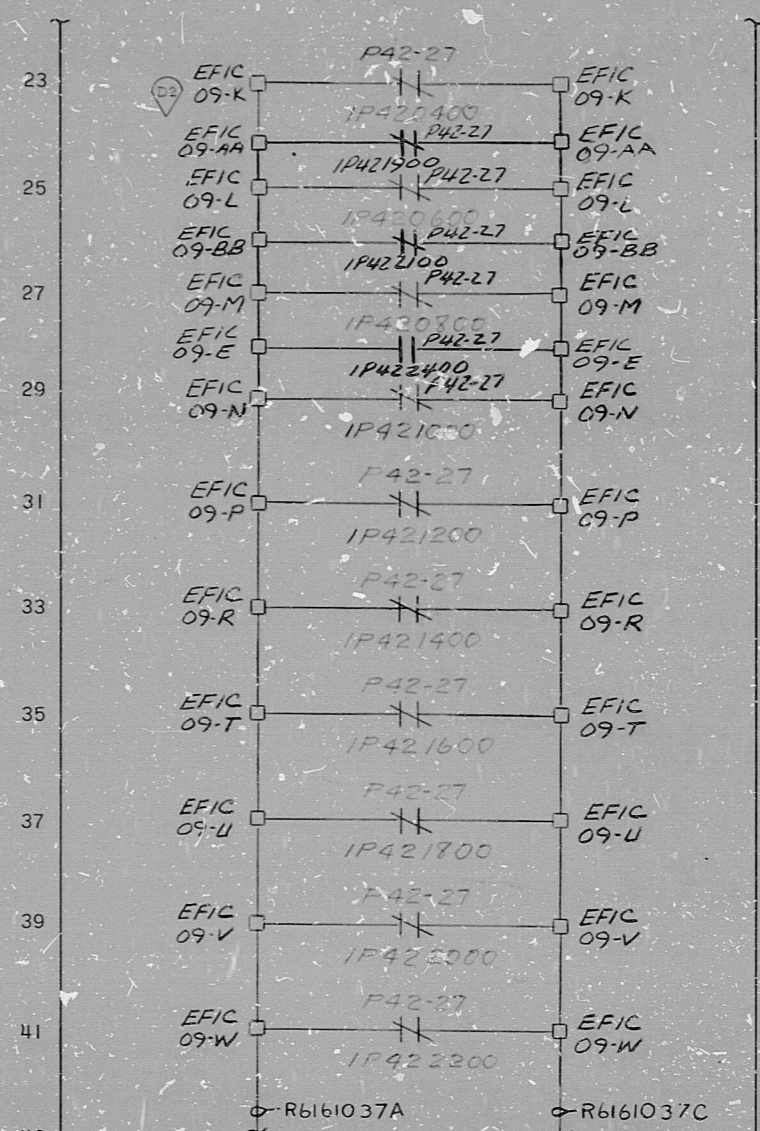 P42-27
23
D2
EFIC
09-K
EFIC
09-K
1P420400
EFIC
09-AA
P42-27
EFIC
09-AA
1P421900
25
EFIC
09-L
P42-27
EFIC
09-L
1P420600
EFIC
09-BB
P42-27
EFIC
09-BB
1P422100
27
EFIC
09-M
P42-27
EFIC
09-M
1P420800
EFIC
09-E
P42-27
EFIC
09-E
1P422400
29
EFIC
09-N
P42-27
EFIC
09-N
1P421000
P42-27
31
EFIC
09-P
EFIC
09-P
1P421200
P42-27
33
EFIC
09-R
EFIC
09-R
1P421400
P42-27
35
EFIC
09-T
EFIC
09-T
1P421600
P42-27
37
EFIC
09-U
EFIC
09-U
1P421800
P42-27
39
EFIC
09-V
EFIC
09-V
1P422000
P42-27
41
EFIC
09-W
EFIC
09-W
1P422200
R6161037A
R6161037C